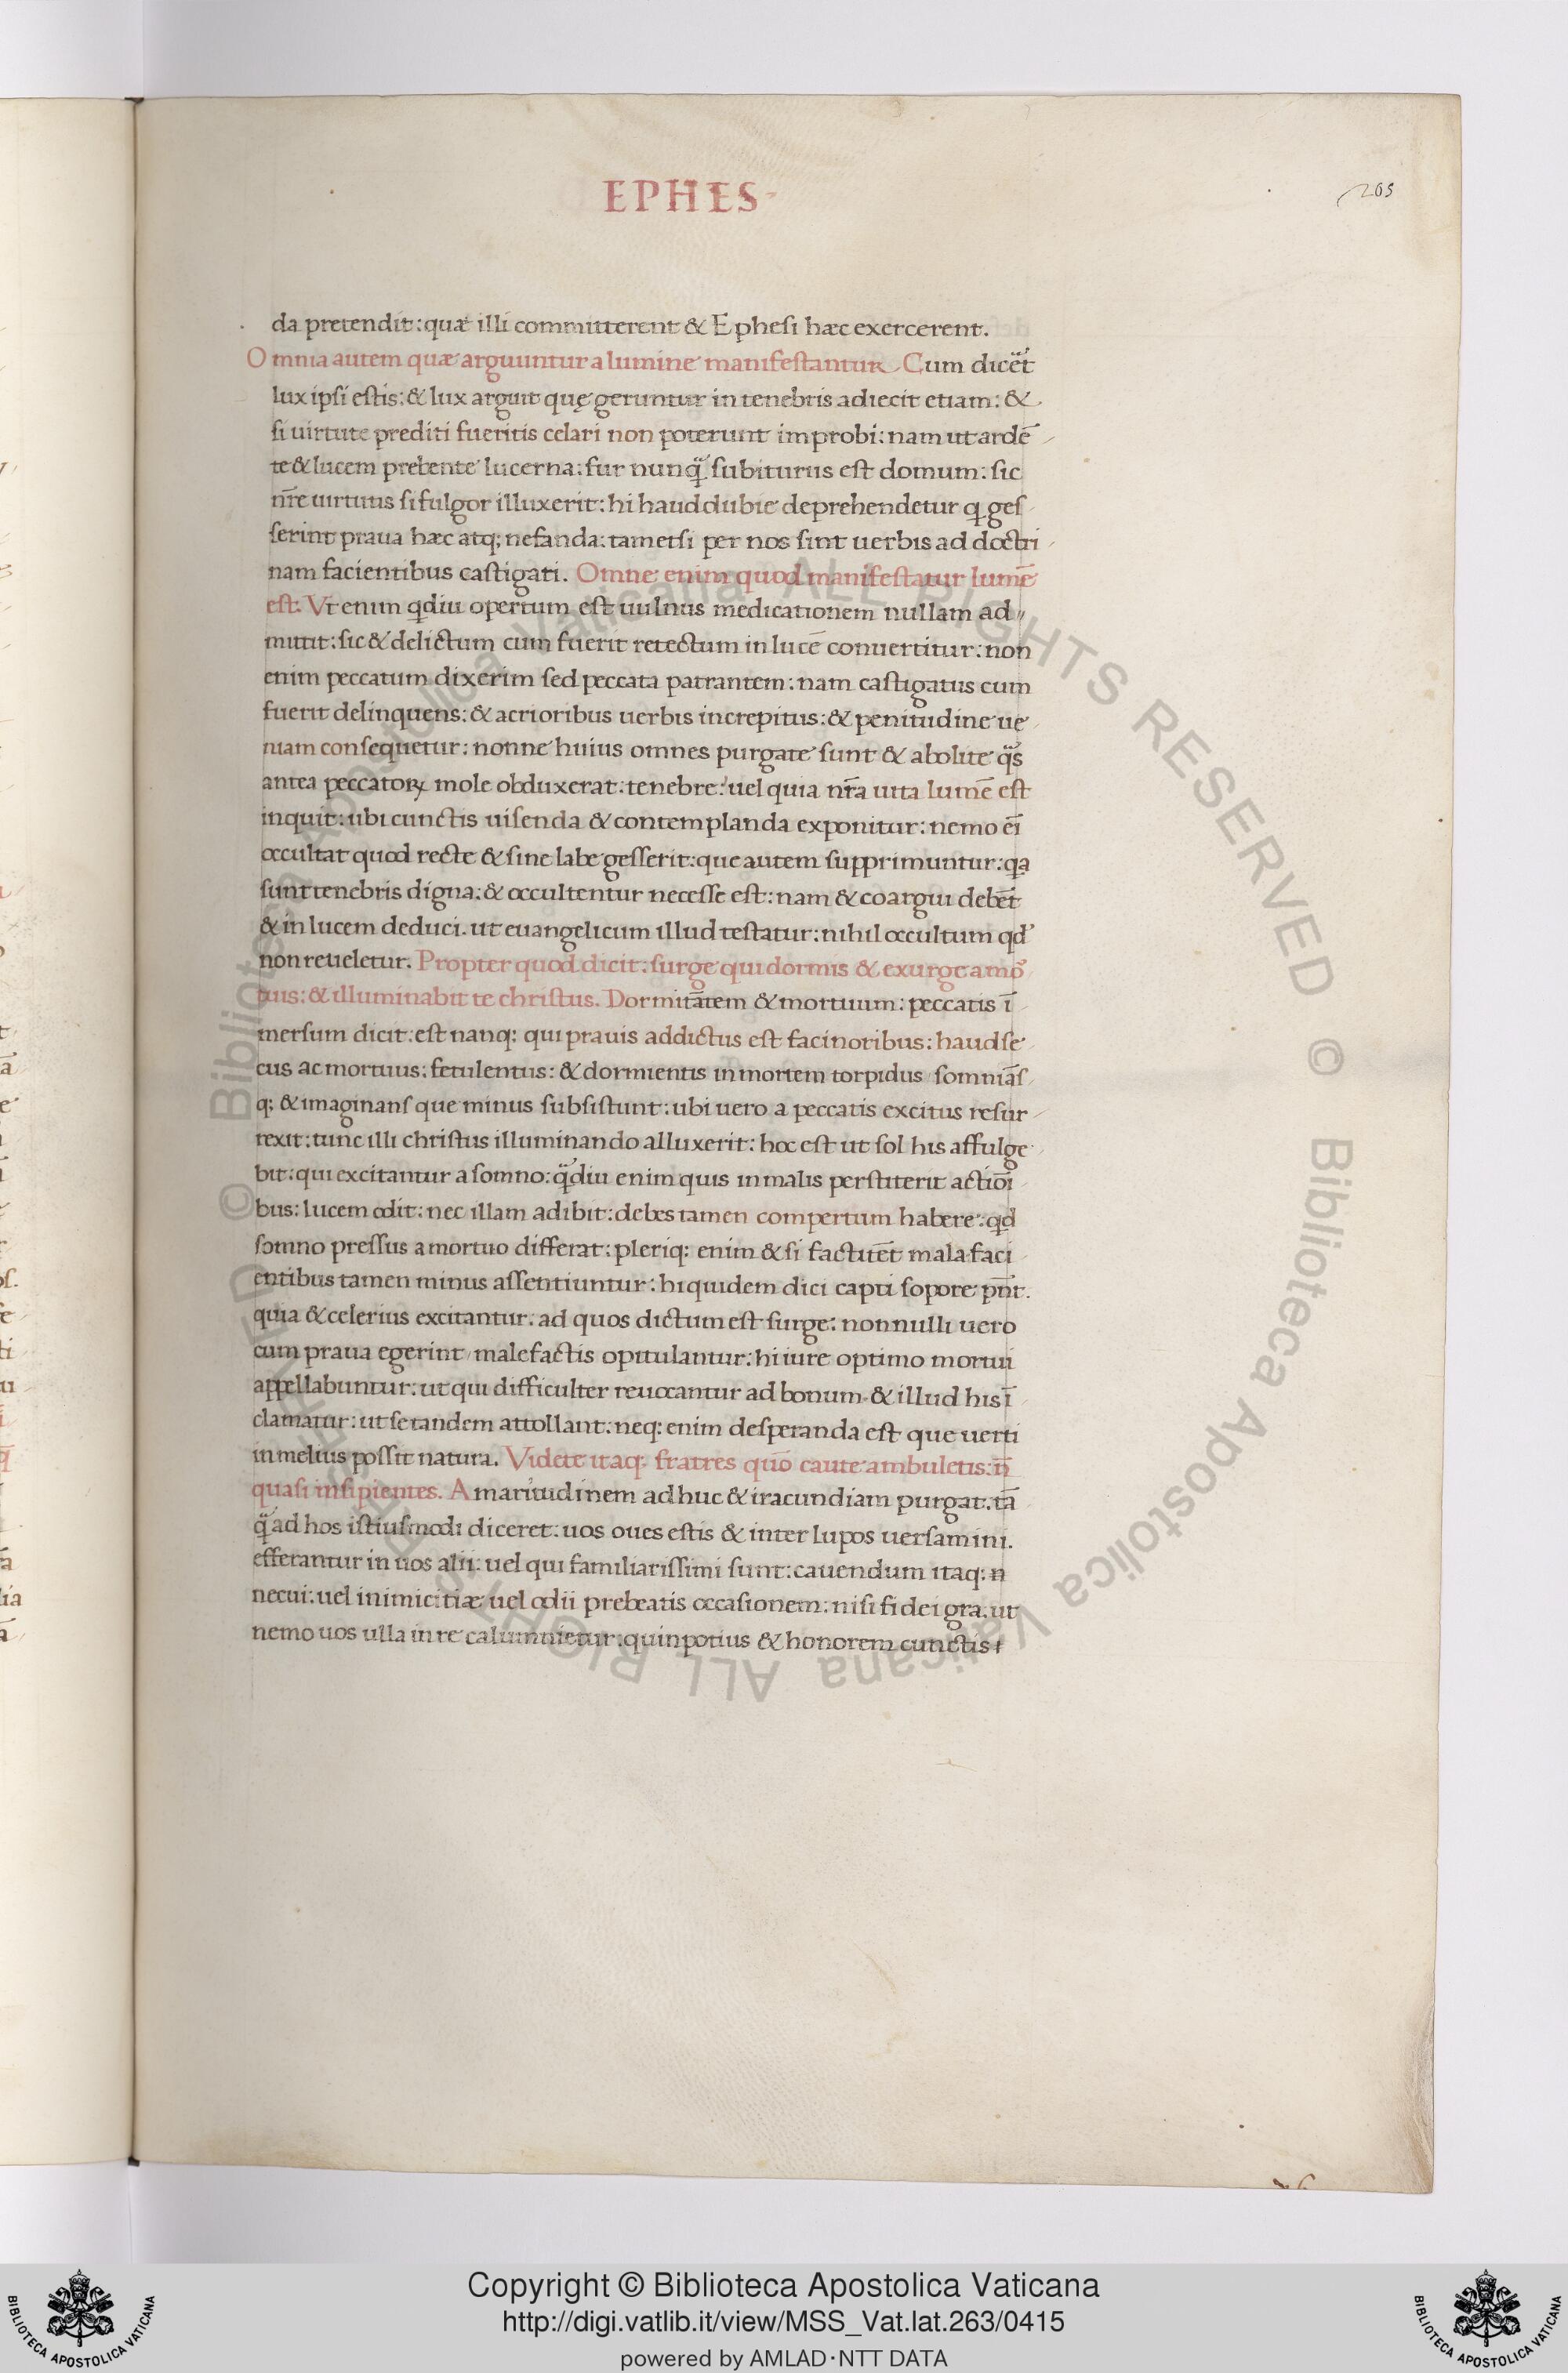 EPHES·
205
da pretendit: quæ illi committerent & Ephesi hæc exercerent.
Omnia autem quæ arguuntur a lumine manifestantur. Cum dicẽt
lux ipsi estis: & lux arguit quę geruntur in tenebris adiecit etiam: &
si uirtute prediti fueritis celari non poterunt improbi: nam ut ardẽ
te & lucem prebente lucerna: fur nunq̃ subiturus est domum: sic
nr̃e uirtutis si fulgor illuxerit: hi haud dubie deprehendetur q ges
serint praua hæc atq; nefanda: tametsi per nos sint uerbis ad doctri
nam facientibus castigati. Omne enim quod manifestatur lumẽ
est. Vt enim qdiu opertum est uulnus medicationem nullam ad
mittit: sic & delictum cum fuerit retectum in lucẽ conuertitur: non
enim peccatum dixerim sed peccata patrantem: nam castigatus cum
fuerit delinquens: & acrioribus uerbis increpitus: & penitudine ue
niam consequetur: nonne huius omnes purgate sunt & abolite q̃s
antea peccatoꝝ mole obduxerat: tenebre: uel quia nr̃a uita lumẽ est
inquit: ubi cunctis uisenda & contemplanda exponitur: nemo eĩ
occultat quod recte & sine labe gesserit: que autem supprimuntur: qa
sunt tenebris digna: & occultentur necesse est: nam & coargui debẽt
& in lucem deduci. ut euangelicum illud testatur: nihil occultum qd
non reueletur. Propter quod dicit: surge qui dormis & exurge a mo
tuis: & illuminabit te christus. Dormitãtem & mortuum: peccatis ĩ
mersum dicit: est nanq: qui prauis addictus est facinoribus: haud se
cus ac mortuus: fetulentus: & dormientis in mortem torpidus somniãs
q; & imaginans que minus subsistunt: ubi uero a peccatis excitus resur
rexit: tunc illi christus illuminando alluxerit: hoc est ut sol his affulge
bit: qui excitantur a somno: q̃diu enim quis in malis perstiterit actiõi
bus: lucem odit: nec illam adibit: debes tamen compertum habere: qd
somno pressus a mortuo differat: pleriq: enim & si factitẽt mala faci
entibus tamen minus assentiuntur: hi quidem dici capti sopore pñt.
quia & celerius excitantur. ad quos dictum est surge: nonnulli uero
cum praua egerint malefactis opitulantur: hi iure optimo mortui
appellabuntur: ut qui difficulter reuocantur ad bonum. & illud his ĩ
clamatur: ut se tandem attollant: neq: enim desperanda est que uerti
in melius possit natura. Videte itaq: fratres quõ caute ambuletis: ñ
quasi insipientes. Amaritudinem adhuc & iracundiam purgat. tã
q̃ ad hos istiusmodi diceret: uos oues estis & inter lupos uersamini.
efferantur in uos alii: uel qui familiarissimi sunt: cauendum itaq: n
necui: uel inimicitiæ uel odii prebeatis occasionem: nisi fidei gra. ut
nemo uos ulla in re calumnietur: quin potius & honorem cunctis
© Biblioteca Apostolica Vaticana ALL RIGHTS RESERVED © Biblioteca Apostolica Vaticana ALL RIGHTS RESERVED
Copyright © Biblioteca Apostolica Vaticana
http://digi.vatlib.it/view/MSS_Vat.lat.263/0415
powered by AMLAD·NTT DATA
BIBLIOTECA APOSTOLICA VATICANA
BIBLIOTECA APOSTOLICA VATICANA